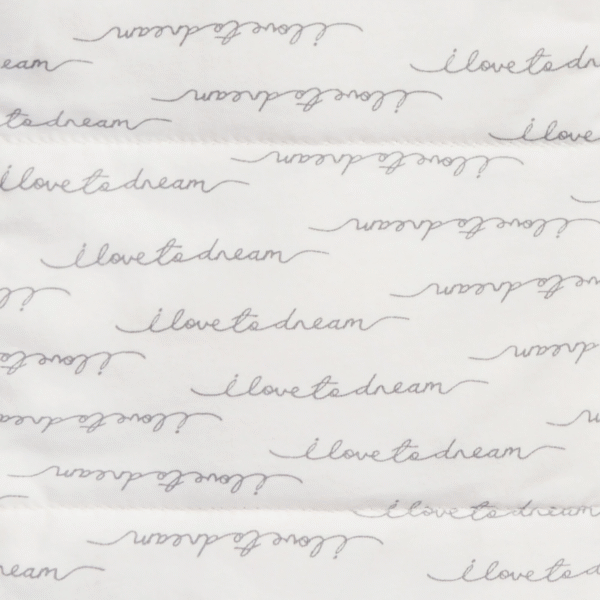 i love to dream
eam
i love to dr
i love to dream
to dream
i love
i love to dream
i love to dream
i love to dream
i love to dream
ve to dream
i l
i love to dream
dream
i love to
i love to dream
i love to drea
i love to dream
i love to dream
i love to dream
i love to dream
eam
i love to d